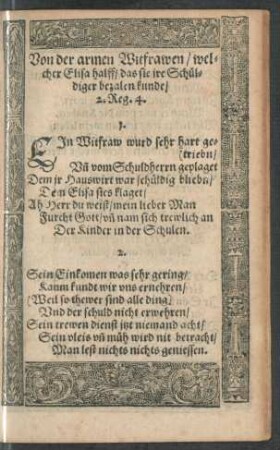 Von der armen Witfrawen/ wel-
cher Elisa halff/ das sie ire Schül-
diger bezalen kunde/
2. Reg. 4.
1.
EIn Witfraw wurd sehr hart ge-
(triebn/
Vn̄ vom Schuldherrn geplaget
Dem jr Hauswirt war schüldig bliebn/
Dem Elisa sies klaget/
Ah Herr du weist/ mein lieber Man
Furcht Gott/ vn̄ nam sich trewlich an
Der Kinder in der Schulen.
2.
Sein Einkomen was sehr gering/
Kaum kundt wir vns ernehren/
(Weil so thewer sind alle ding)
Vnd der schuld nicht erwehren/
Sein trewen dienst jtzt niemand acht/
Sein vleis vn̄ müh wird nit betracht/
Man lest nichts nichts geniessen.